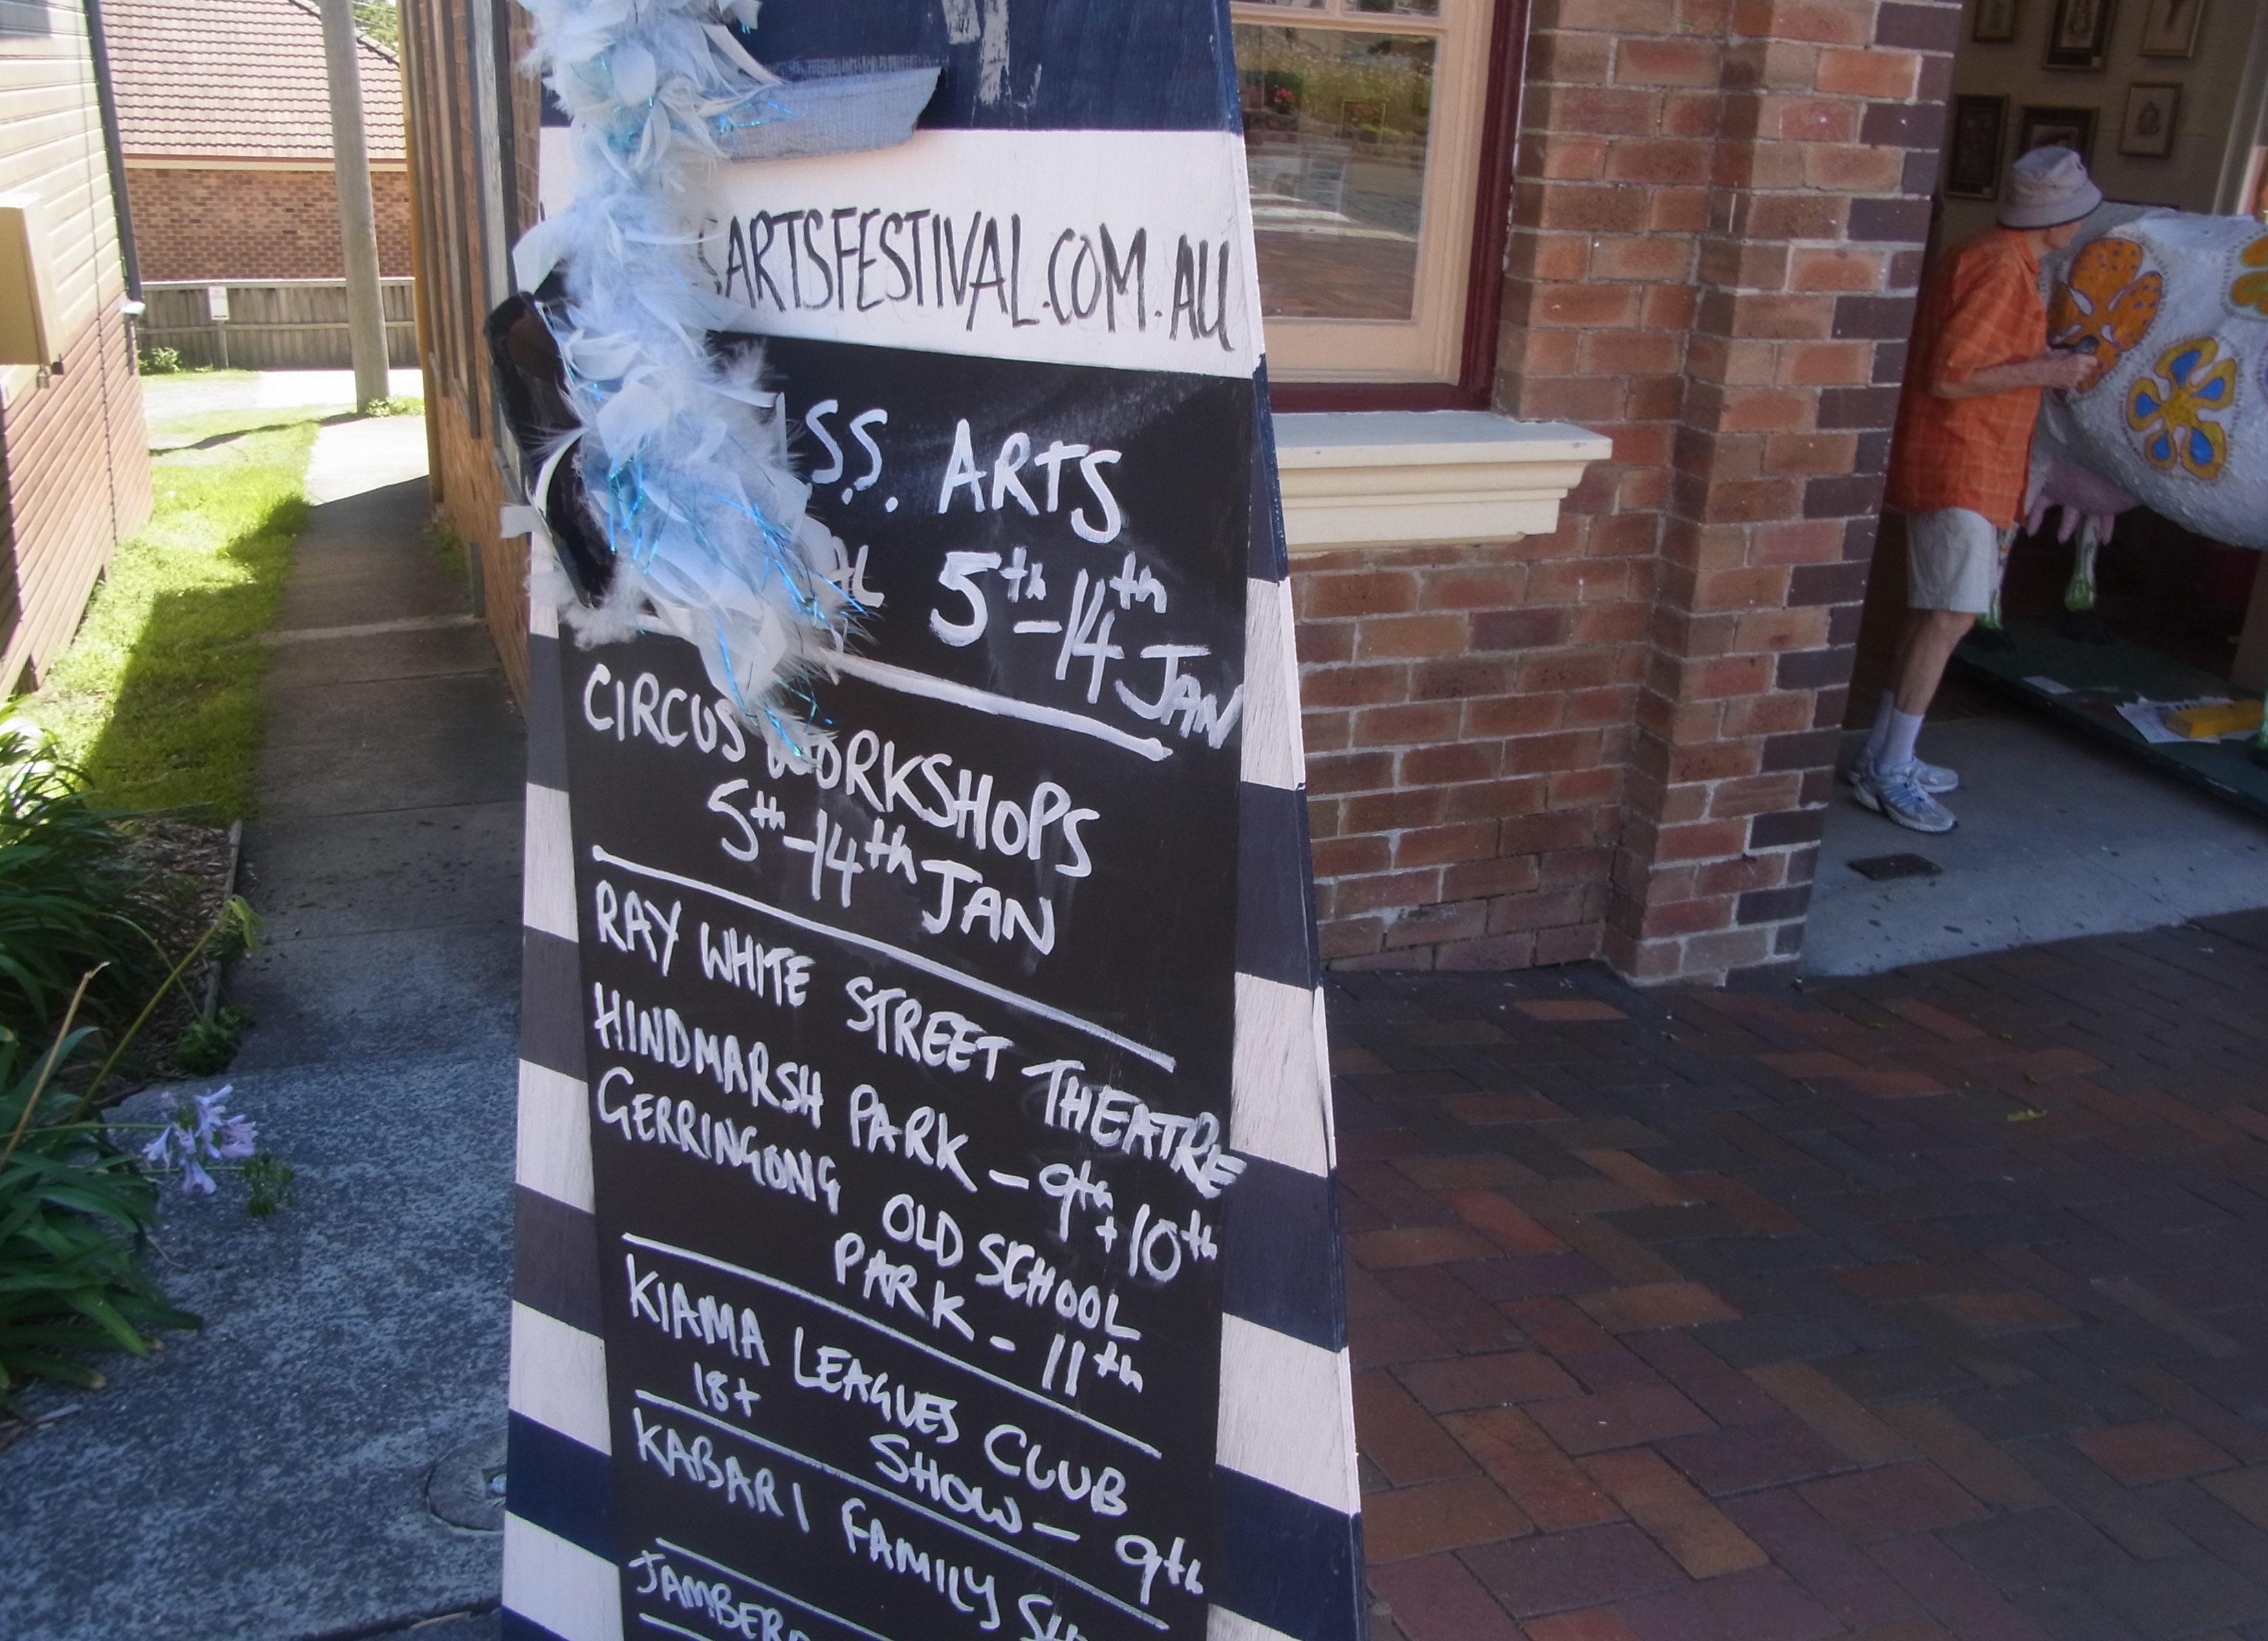 SARTSFESTIVAL.COM.AU
S.S. ARTS
AL 5th-14th JAN
CIRCUS WORKSHOPS
5th-14th JAN
RAY WHITE STREET THEATRE
HINDMARSH PARK - 9th + 10th
GERRINGONG OLD SCHOOL
PARK - 11th
KIAMA LEAGUES CLUB
18+ SHOW - 9th
KABARI FAMILY SH
JAMBER